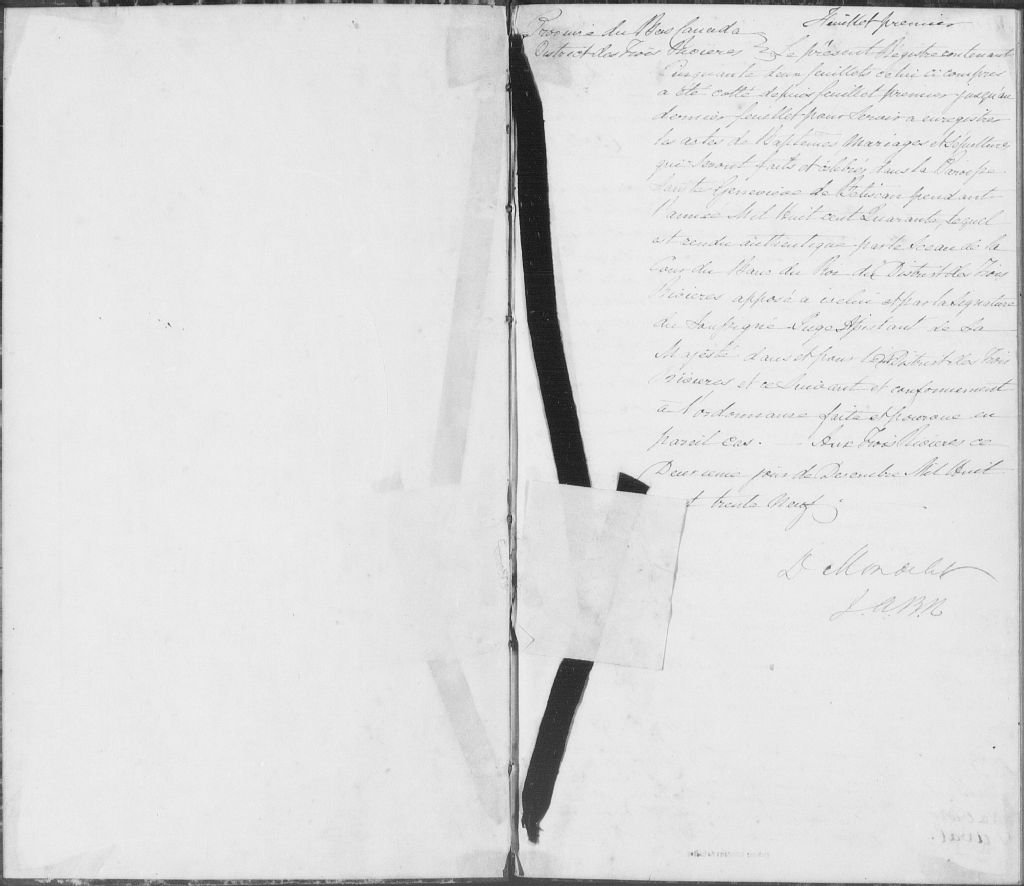 Feuillet premier
Province du Bas Canada
District des Trois Rivieres } Le présent Registre contenant
Cinquante deux feuillets celui ci compris
a été cotté depuis feuillet premier jusqu'au
dernier feuillet pour servir a enregistrer
les actes de Baptêmes Mariages et Sépulture
qui seront faits et célébrés dans la Paroisse
Sainte Geneviève de Batiscan pendant
l'année Mil Huit cent Quarante, lequel
est rendu authentique par le Sceau de la
Cour du Banc du Roi du District des Trois
Rivieres apposé a icelui et par la Signature
du Soussigné Juge Assistant de Sa
Majésté dans et pour le District des Trois
Rivieres et ce suivant et conformement
à l'ordonnance faite et pourvue en
pareil cas. Aux Trois Rivieres ce
Deuxieme jour de Decembre Mil Huit
t trente Neuf
D Mondelet
J. A. B. R